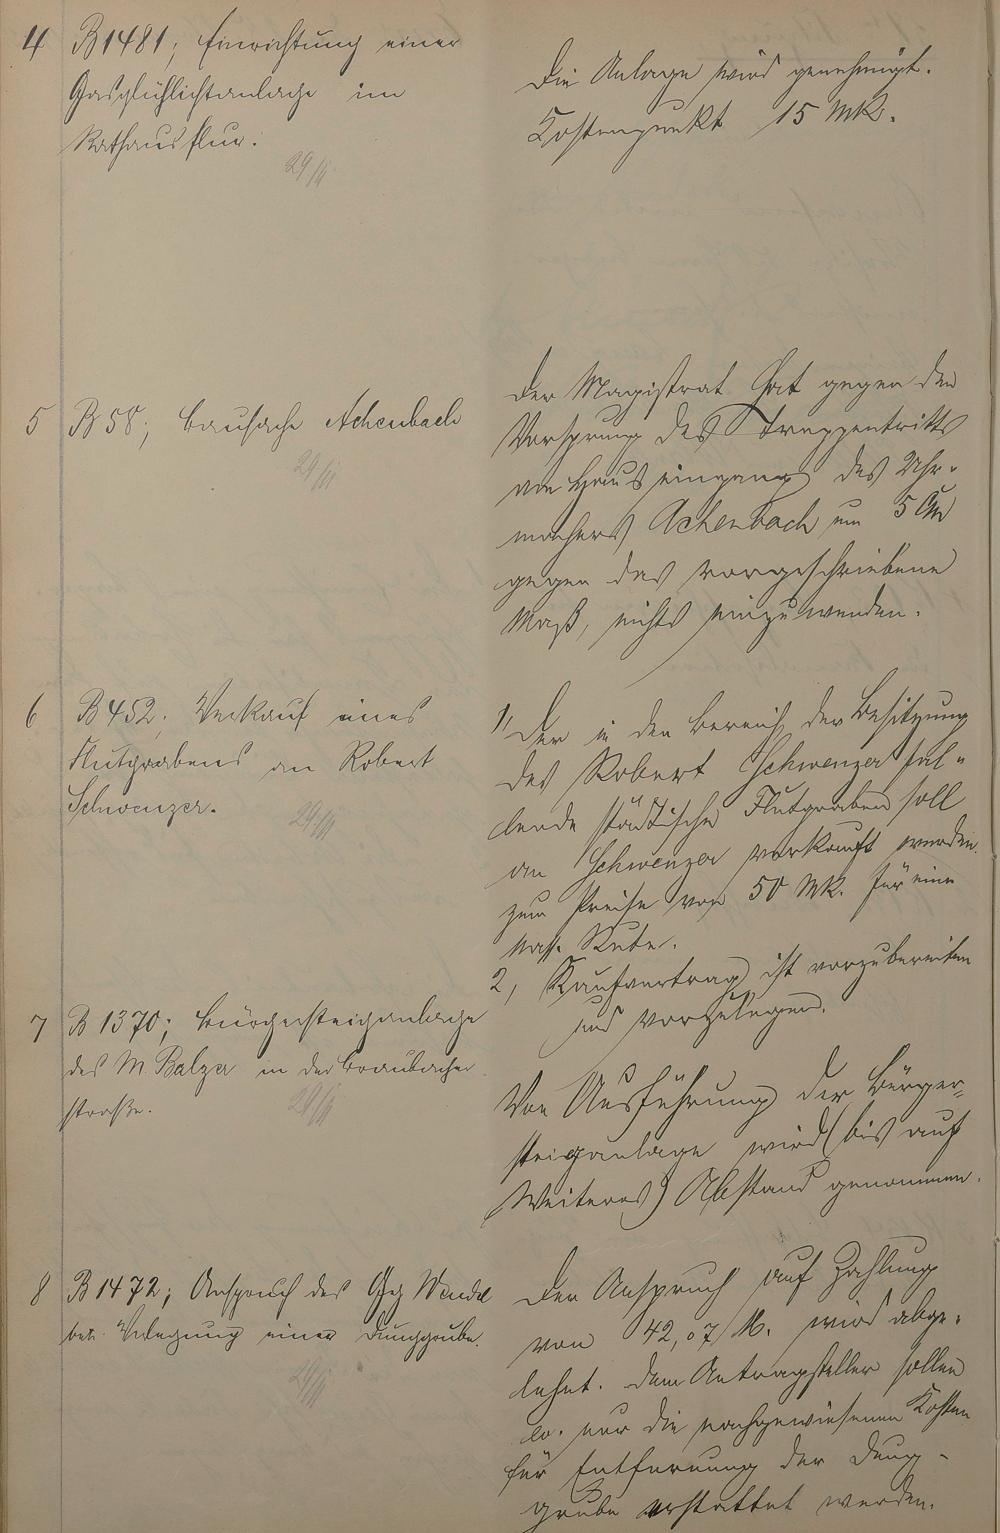 4 B 1481; Einrichtung einer
Gasglühlichtanlage im
Rathausflur.
29/11
Die Anlage wird genehmigt.
Kostenpunkt 15 Mk.
5 B 58; Bausache Achenbach
29/11
Der Magistrat hat gegen den
Vorsprung des Treppentritts
am Hauseingang des Uhr-
machers Achenbach um 5 cm
gegen das vorgeschriebene
Maß, nichts einzuwenden.
6 B 452. Verkauf eines
Flutgrabens an Robert
Schwenzer.
29/11
1, Der in den Bereich der Besitzung
des Robert Schwenzer fal-
lende städtische Flutgraben soll
an Schwenzer verkauft werden
zum Preise von 50 Mk. für eine
nass. Rute.
2, Kaufvertrag ist vorzubereiten
und vorzulegen.
7 B 1370; Bürgersteiganlage
des M. Balzer in der Braubacher
straße.
29/11
Von Ausführung der Bürger-
steiganlage wird (bis auf
Weiteres) Abstand genommen.
8 B 1472; Anspruch des Gg Wendel
betr. Verlegung einer Dunggrube.
29/11
Der Anspruch auf Zahlung
von 42,07 M. wird abge-
lehnt. Dem Antragsteller sollen
ev. nur die nachgewiesenen Kosten
für Entfernung der Dung-
grube erstattet werden.